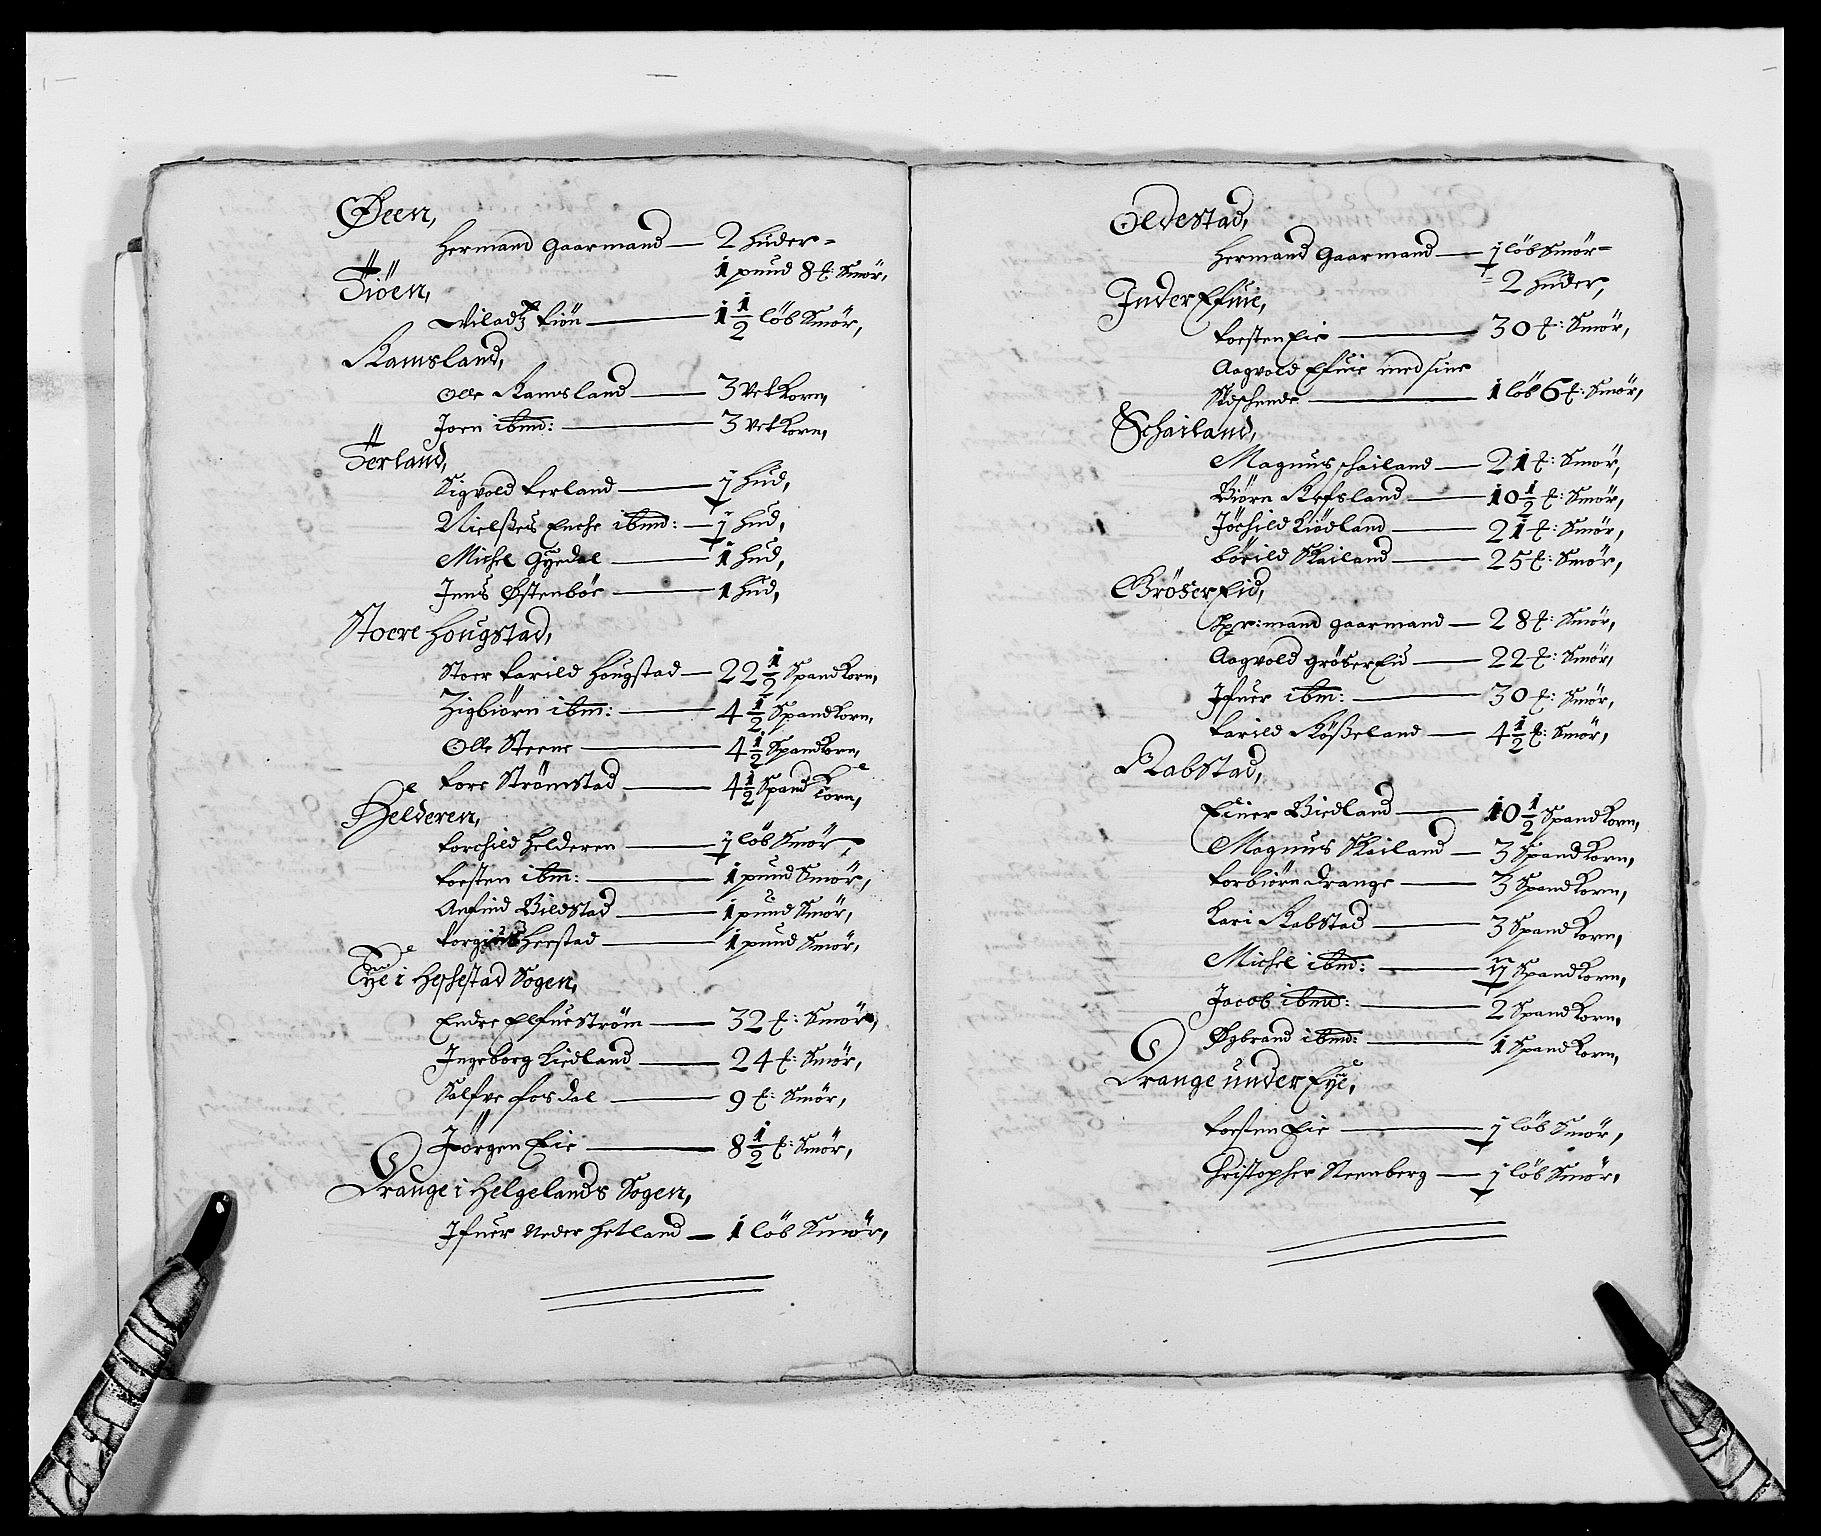 Øeen,
Hermand Gaarmand — 2 Huder=
1 pund 8 ℔: Smör,
Tiöen,
Viladtz tiön — 1 1/2 löb Smör,
Ramsland,
Olle Ramsland — 3 Vet Korn,
Joen ibmd: — 3 Vet Korn,
Terland,
Sigvold terland — j Hud,
Nielsses Enche ibmd: — j Hud,
Michel Gyedal — 1 Hud,
Jens Østenböe — 1 Hud,
Stoere Hougstad,
Stoer tarild Hougstad — 22 1/2 Spand Korn,
Zigbiörn ibm: — 4 1/2 Spand Korn,
Olle Steene — 4 1/2 Spand Korn,
tore Strömstad — 4 1/2 Spand Korn,
Helderen,
torchild Helderen — j löb Smör,
toesten ibm: — 1 pund Smör,
Anfind Bildstad — 1 pund Smör,
torgius Herstad — 1 pund Smör,
Eye i Heshestad Sogen,
Endre Elfueström — 32 ℔: Smör,
Ingeborg Liedland — 24 ℔: Smör,
Salfve fosdal — 9 ℔: Smör,
Jörgen Eie — 8 1/2 ℔: Smör,
Drange i Helgelands Sogen,
Ifuer Neder Hetland — 1 löb Smör,
Oldestad,
Hermand Gaarmand — j löb Smör=
= 2 Huder,
Inder Efuie,
toesten Eie — 30 ℔: Smör,
Aagvold Efuie med sine
Södschende — 1 löb 6 ℔: Smör,
Schailand,
Magnus schailand — 21 ℔: Smör,
Biörn Refsland — 10 1/2 ℔: Smör,
Jöchild Liödland — 21 ℔: Smör,
börild Skailand — 25 ℔: Smör,
Grösereid,
Hr: mand gaarmand — 28 ℔: Smör,
Aagvold gröserEid — 22 ℔: Smör,
Ifuer ibm: — 30 ℔: Smör,
tarild Rösseland — 4 1/2 ℔: Smör,
Rabstad,
Einer Birdland — 10 1/2 Spand Korn,
Magnus Skailand — 3 Spand Korn,
torbiörn drange — 3 Spand Korn,
Kari Rabstad — 3 Spand Korn,
Michel ibmd: — ij Spand Korn,
Jacob ibmd: — 2 Spand Korn,
Øgbrand ibmd: — 1 Spand Korn,
Drange under Eye,
toesten Eie — j löb Smör,
Christopher Steenberg — j löb Smör,